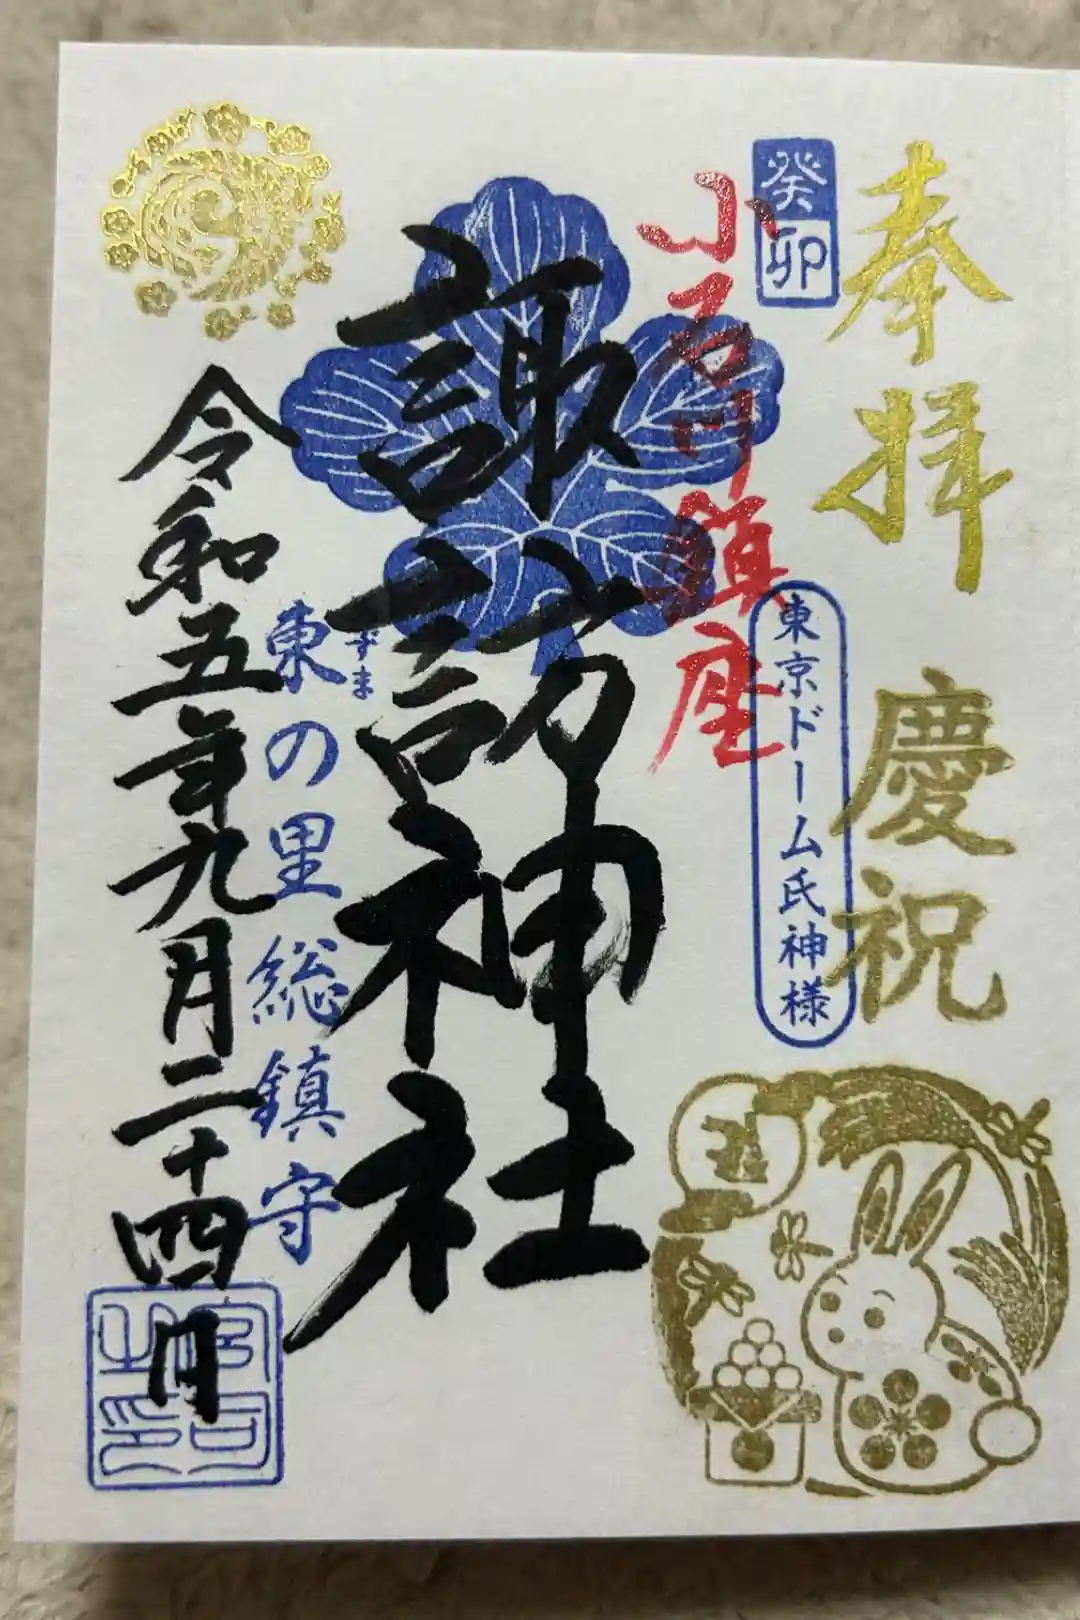 奉拝
慶祝
癸卯
東京ドーム氏神様
小石川鎮座
諏訪神社
東の里総鎮守
ずま
令和五年九月二十四日
宮司之印